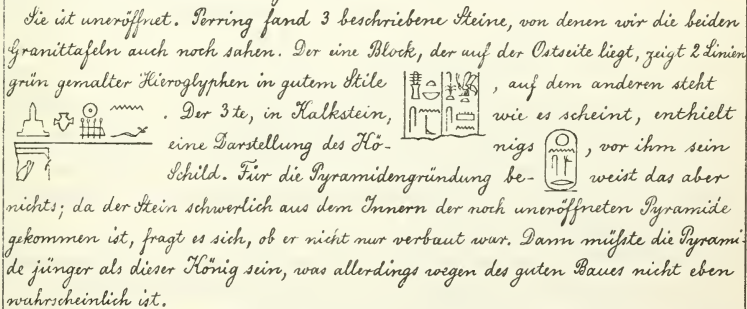 Sie ist uneröffnet. Perring fand 3 beschriebene Steine, von denen wir die beiden
Granittafeln auch noch sahen. Der eine Block, der auf der Ostseite liegt, zeigt 2 Linien
grün gemalter Hieroglyphen in gutem Stile , auf dem anderen steht
. Der 3te, in Kalkstein, wie es scheint, enthielt
eine Darstellung des Kö- nigs , vor ihm sein
Schild. Für die Pyramidengründung be- weist das aber
nichts; da der Stein schwerlich aus dem Innern der noch uneröffneten Pyramide
gekommen ist, fragt es sich, ob er nicht nur verbaut war. Dann müßte die Pyrami-
de jünger als dieser König sein, was allerdings wegen des guten Baues nicht eben
wahrscheinlich ist.